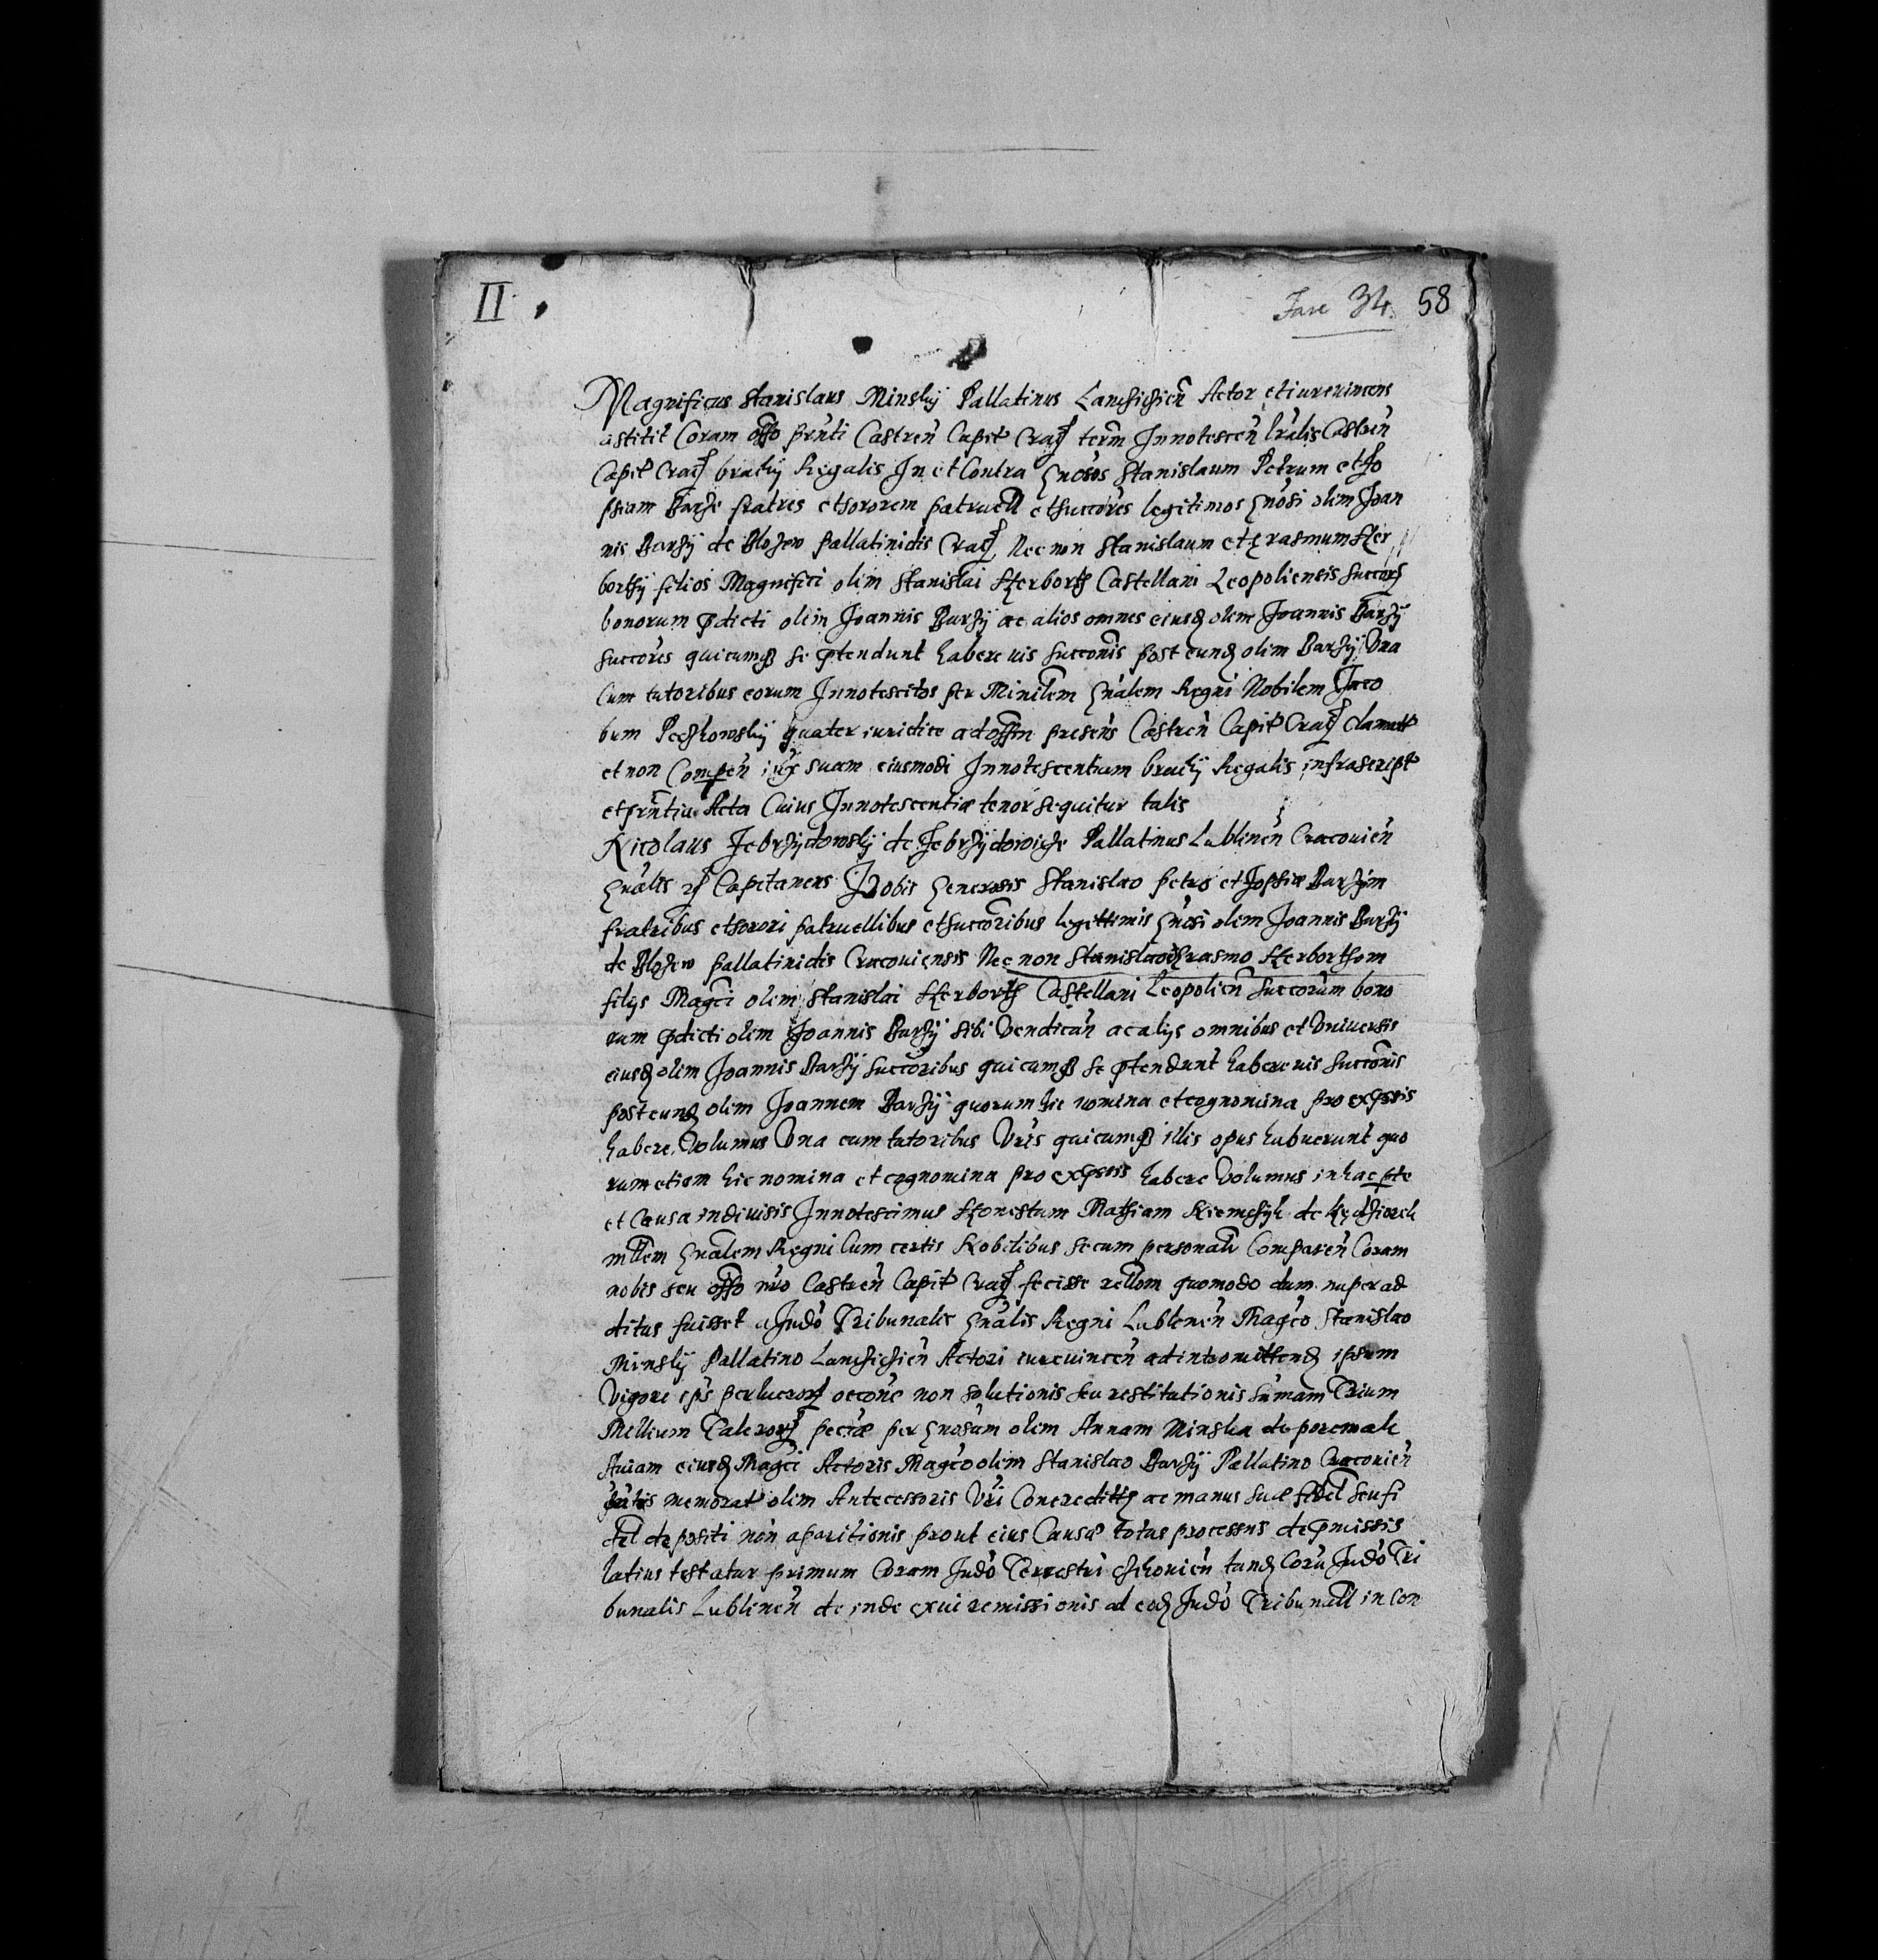 II
Fasc 34. 58
Magnificus Stanislaus Minskij Pallatinus Lanciciēn Actor et iurevincens
astitit Coram offo prñti Castreñ Capit Craƈ term Innotesceñ lralis Castreñ
Capit Craƈ brachij Regalis In et Contra Gnosos Stanislaum Petrum et So
phiam Barze fratres et sororem patruell et succores legitimos Gnosi olim Joan
nis Barzij de Blozew Pallatinidis Craƈ Nec non Stanislaum et Erasmum Her
borthij filios Magnifici olim Stanislai Herborth Castellani Leopoliensis Succorꝝ
bonorum pdicti olim Joannis Barzij ac alios omnes eiusdꝫ olim Joannis Barzij
Succores quicumqꝫ se ptendunt habere uis Succonis post eundꝫ olim Barzij Una
Cum tutoribus eorum Innotescitos per Minilem Gnalem Regni Nobilem Jaco
bum Peczkowskij quater iuridice ad offm presens Castreñ Capit Craƈ clamatt
et non Compeñ iux suam eiusmodi Innotescentiam brachij Regalis infrascript
et prñtia Acta Cuius Innotescentiæ tenor sequitur talis
Nicolaus Zebrzijdowskij de Zebrzijdowicze Pallatinus Lublineñ Cracouieñ
Gnalis ꝛƈ Capitaneus Vobis Generosis Stanislao Petro et Zophiæ Barzijm
fratribus et sorori patruellibus et succoribus legittimis Gnosi olim Joannis Barzij
de Blozew pallatinidis Cracouiensis Nec non Stanislao et Erasmo Herborthom
filijs Magci olim Stanislai Herborth Castellani Leopolieñ Succorum bono
rum pdicti olim Joannis Barzij sibi Vendicañ ac alijs omnibus et Vniuersis
eiusdꝫ olim Joannis Barzij Succoribus quicumqꝫ se ptendunt habere uis Succonis
post eundꝫ olim Joannem Barzij quorum hic nomina et cognomina pro expssis
habere Volumus Vna cum tutoribus Vris quicumqꝫ illis opus habuerunt quo
rum etiam hic nomina et cognomina pro expssis habere Volumus in hac pte
et Causa indiuisis Innotescimus Honestum Mathiam de
mllem Gnalem Regni Cum certis Nobilibus secum personalr Compareñ Coram
nobis seu offo nro Castreñ Capit Craƈ fecisse rellom quomodo dum nuper ad
ditus fuisset a Judo Tribunalis Gnalis Regni Lublineñ Magco Stanislao
Minskij Pallatino Lancicieñ Actori iureuinceñ ad intromittendꝫ ipsum
Vigore ipis perlucrorꝝ occone non solutionis seu restitutionis Sumam Trium
Millium Talerorꝝ pecciæ per Gnosam olim Annam Minska de
Auiam eiusdꝫ Magci Actoris Magco olim Stanislao Barzij Pallatino Cracouieñ
memorat olim Antecessoris Vri Concreditꝫ ac manus suæ fidel seu fi
del depositi non aparitionis prout eius Causæ totus processus de pmissis
latius testatur primum Coram Judo Terrestri tandꝫ Coru Judo Tri
bunalis Lublineñ de inde ex ui remissionis ad eodꝫ Judo Tribunall in Con